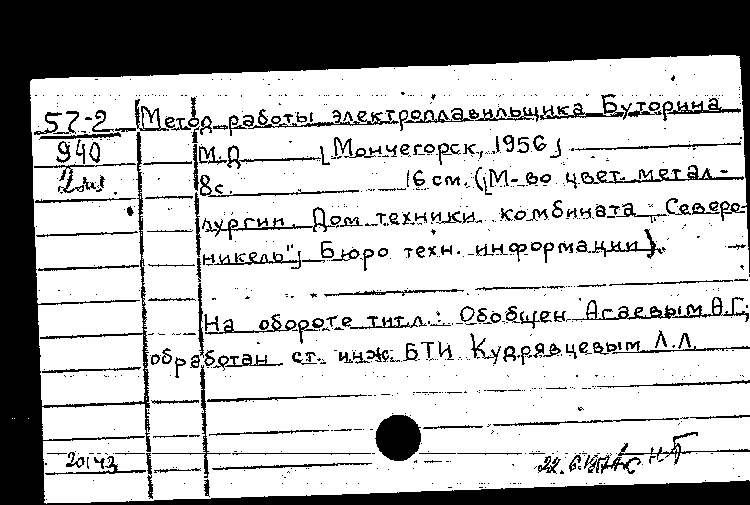 57-2 Метод работы электроплавильщика Буторина
940 М.Д [Мончегорск, 1956]
8с. 16 см. ([М-во цвет. метал-
лургии. Дом техники комбината "Северо-
никель"] Бюро техн. информации).
На обороте тит.л.: Обобщен Агаевым А.Г;
обработан ст. инж. БТИ Кудрявцевым Л.Л.
20143